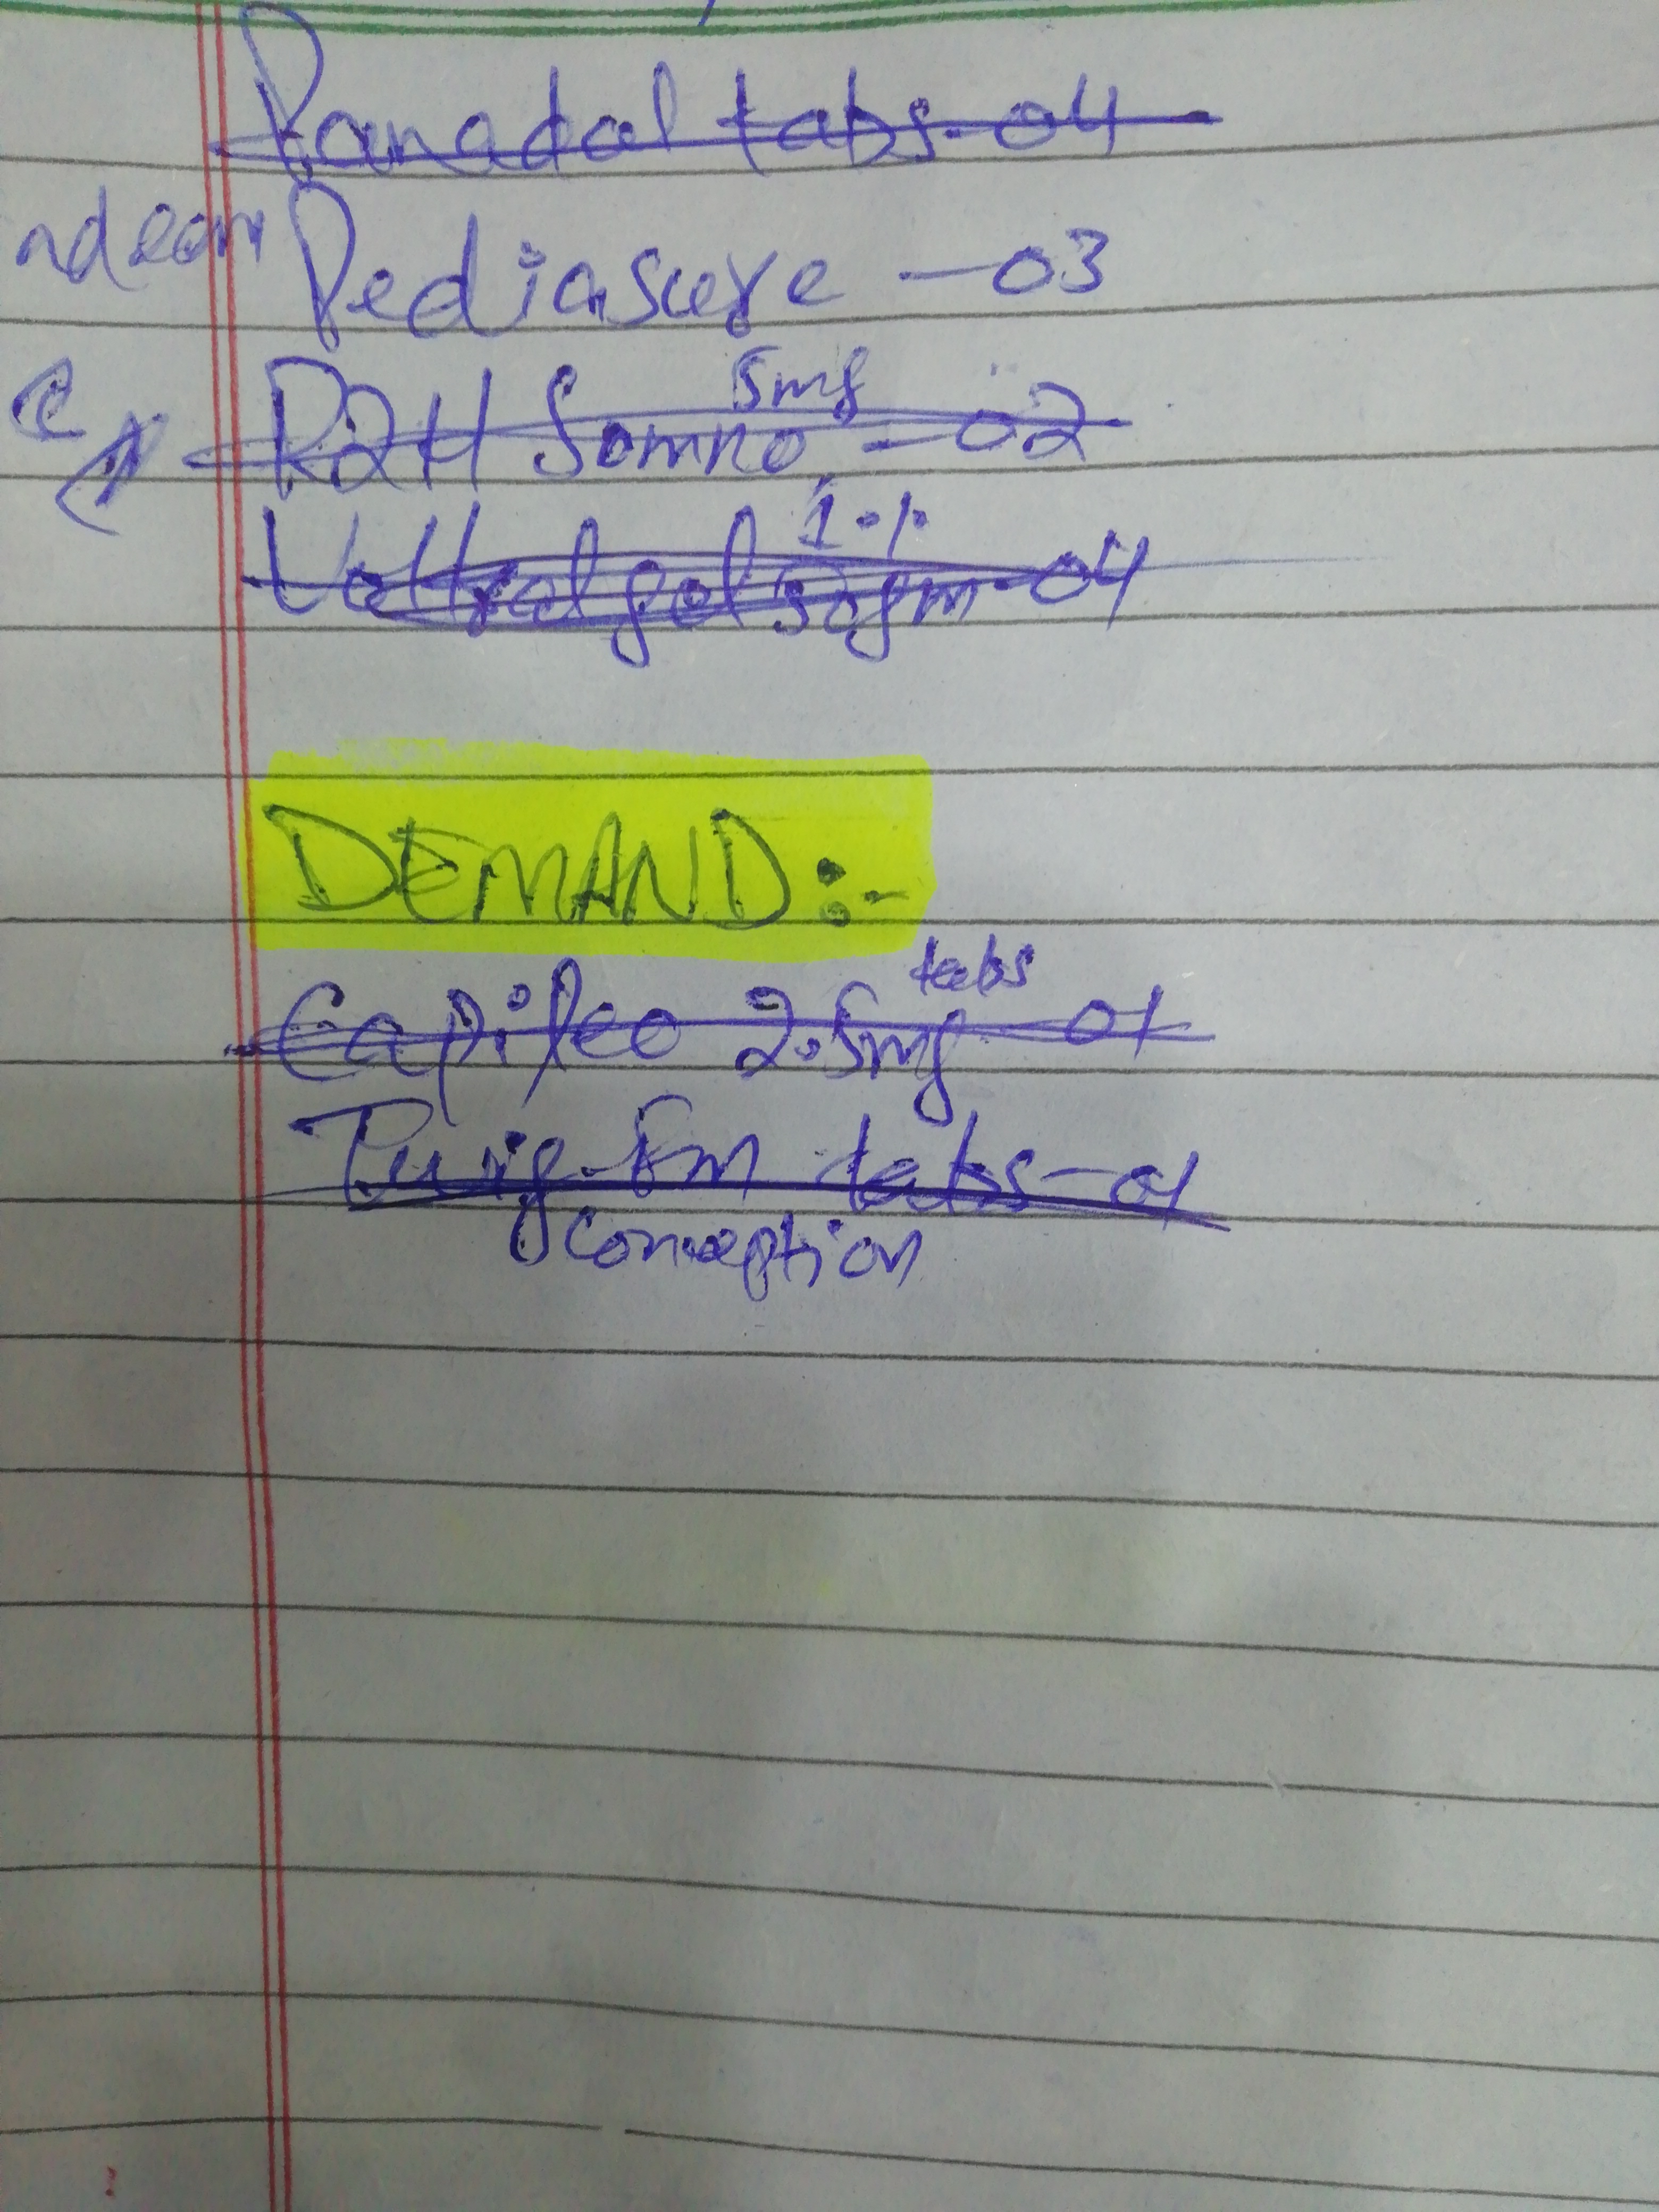 Panadol tabs-04
Pediasure -03
R2H Somno 5mg -02
Voltral gel 50gm 1% -04
DEMAND:-
Capileo 2.5mg tabs 01
tabs-01
conception